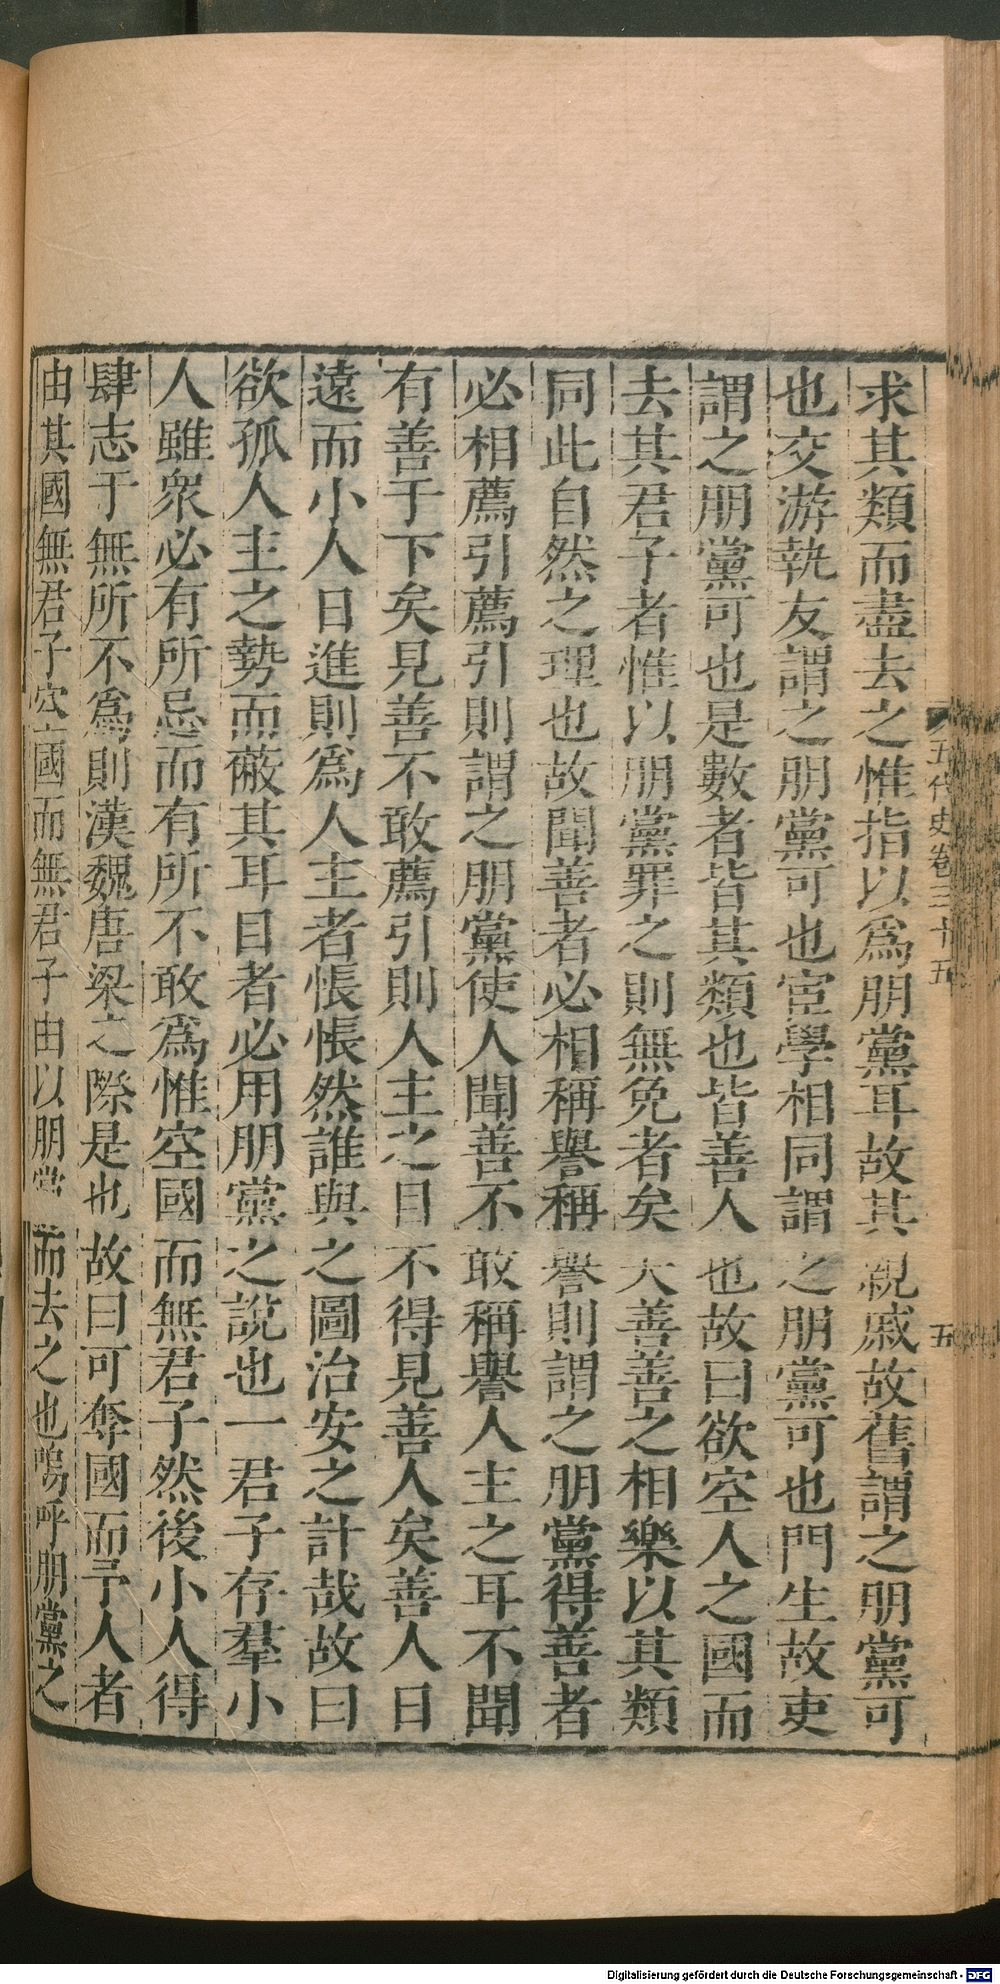 求其類而盡去之惟指以爲朋黨耳故其親戚故舊謂之朋黨可
也交游執友謂之朋黨可也宦學相同謂之朋黨可也門生故吏
謂之朋黨可也是數者皆其類也皆善人也故曰欲空人之國而
去其君子者惟以朋黨罪之則無免者矣夫善善之相樂以其類
同此自然之理也故聞善者必相稱譽稱譽則謂之朋黨得善者
必相薦引薦引則謂之朋黨使人聞善不敢稱譽人主之耳不聞
有善于下矣見善不敢薦引則人主之目不得見善人矣善人日
遠而小人日進則爲人主者悵悵然誰與之圖治安之計哉故曰
欲孤人主之勢而蔽其耳目者必用朋黨之說也一君子存羣小
人雖衆必有所忌而有所不敢爲惟空國而無君子然後小人得
肆志于無所不爲則漢魏唐梁之際是也故曰可奪國而予人者
由其國無君子空國而無君子由以朋黨而去之也嗚呼朋黨之
五代史卷三十五
五
Digitalisierung gefördert durch die Deutsche Forschungsgemeinschaft - DFG